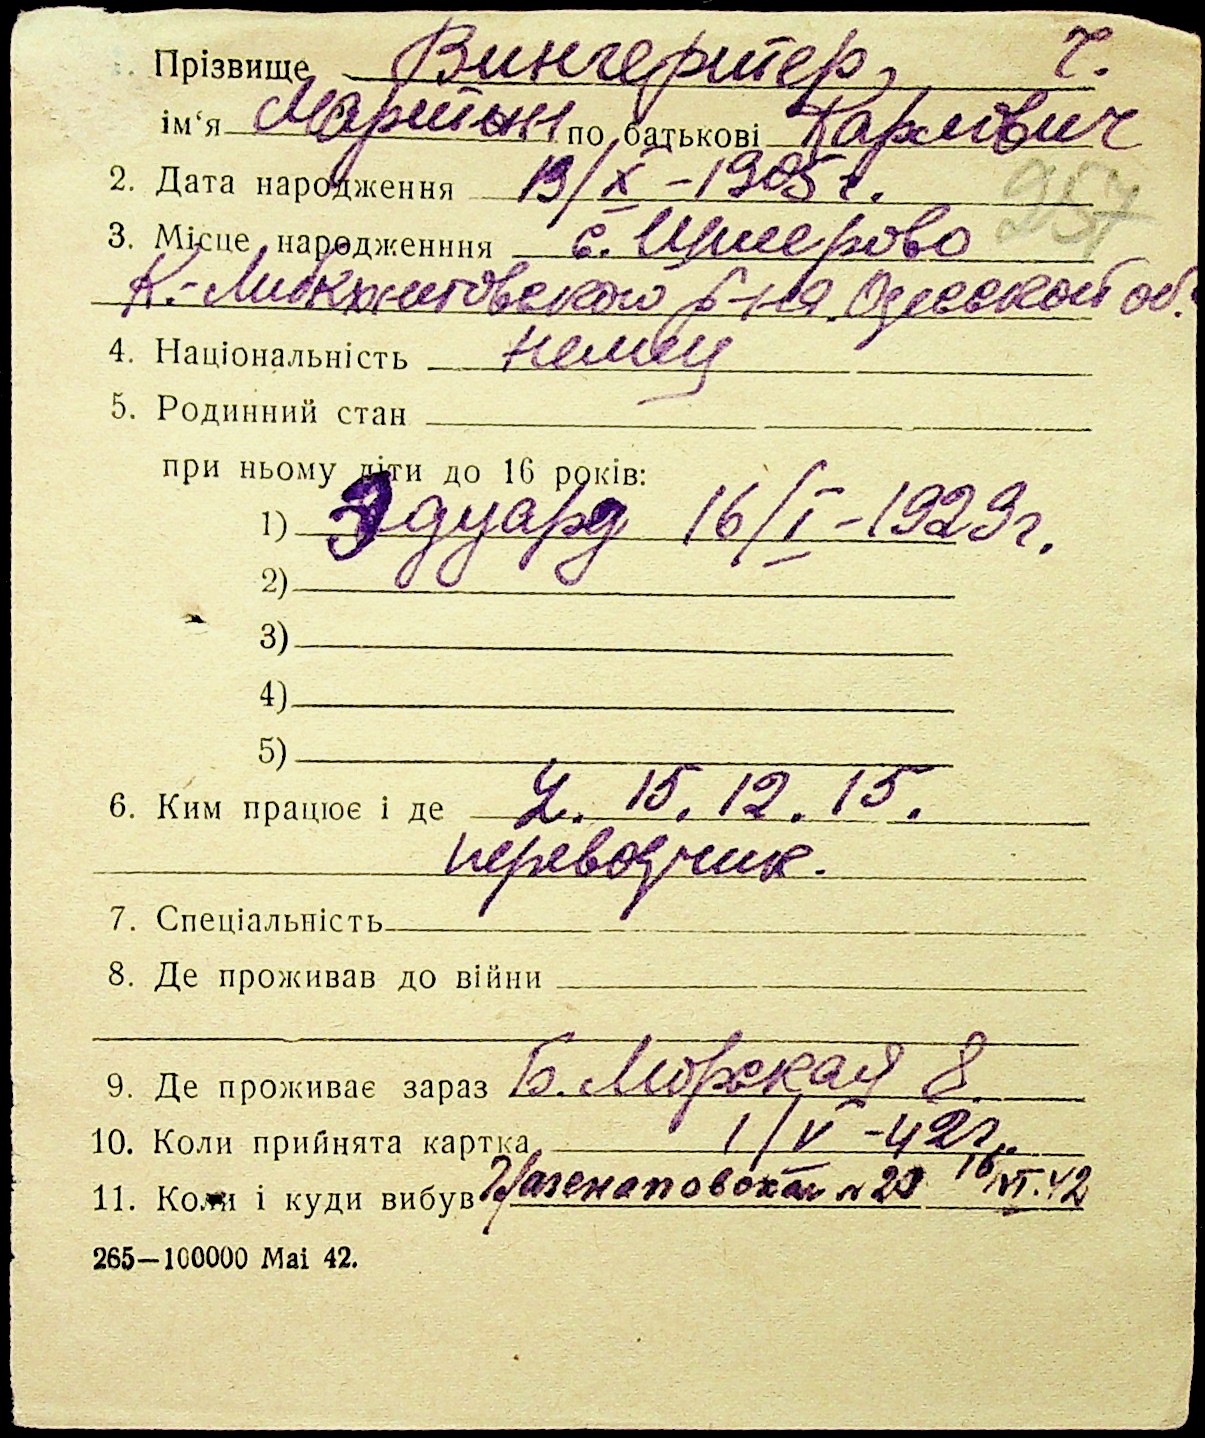 Прізвище Вингеритер, Г.
ім'я Мартын по батькові Карлович
257
2. Дата народження 13/X-1905 г.
3. Місце народженння с.
р-на Одесской об.
4. Національність немец
5. Родинний стан
при ньому діти до 16 років:
1) Эдуард 16/I-1929г.
2)
3)
4)
5)
6. Ким працює і де 15.12.15.
переводчик.
7. Спеціальність
8. Де проживав до війни
9. Де проживає зараз Б. Морская 8.
10. Коли прийнята картка 1/V-42г.
11. Коли і куди вибув 16/VI.42
265—100000 Mai 42.